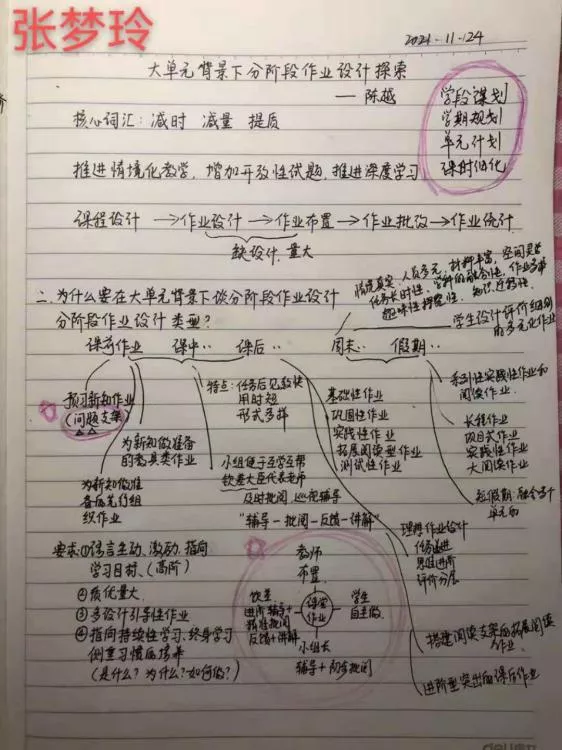 张梦玲
2021.11.24
大单元背景下分阶段作业设计探索
——陈越
核心词汇：减时 减量 提质
学段谋划
学期规划
单元计划
课时细化
推进情境化教学，增加开放性试题，推进深度学习
课程设计→作业设计→作业布置→作业批改→作业统计
缺设计，量大
情境真实，人员多元，材料丰富，空间灵活
任务长时性，学科的融合性，作业多样
趣味性探究性，知识迁移性
二、为什么要在大单元背景下谈分阶段作业设计
分阶段作业设计类型？
学生设计评价组别
的多元化作业
课前作业 课中·· 课后·· 周末·· 假期··
预习新知作业
（问题支架）
为新知做准
备的先行组
织作业
为新知做准备
的教具类作业
特点：任务后见数快
用时短
形式多样
小组便于互学互帮
钦差大臣代表老师
及时批阅 巡视辅导
"辅导—批阅—反馈—讲解"
基础性作业
巩固性作业
实践性作业
拓展阅读型作业
测试性作业
系列性实践性作业和
阅读作业
长程作业
项目式作业
实践性作业
大阅读作业
短假期：融合多个
单元的
理想作业设计
任务递进
思维进阶
评价分层
搭建阅读支架的拓展阅读
作业
进阶型突出的课后作业
要求：①语言生动、激励、指向
学习目标、（高阶）
②质优量大
③多设计引导性作业
④指向持续性学习、终身学习
侧重习惯的培养
（是什么？为什么？如何做？）
教师
布置
钦差
进阶辅导+
精准批阅
反馈+讲解
课堂
作业
学生
自主做
小组长
辅导+初步批阅
deli